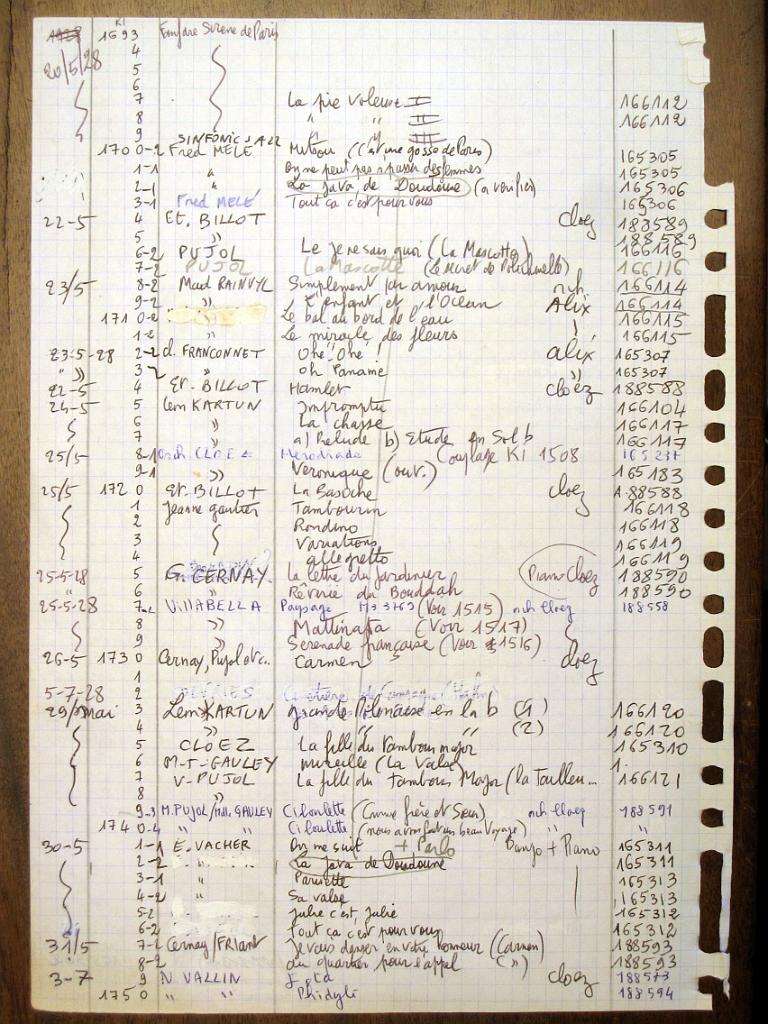 KI
1693 Fanfare Sirène de Paris
4
20/5/28 5
6
7 La pie voleuse I 166112
8 " " II 166112
9 " " III
SINFONIC JAZZ
170 0-2 Fred MELE Mitsou (C'est une gosse de Paris) 165305
1-1 " On ne peut pas se passer des femmes 165305
2-1 " La Java de Doudoune (a verifier) 165306
3-1 Fred MELÉ Tout ça c'est pour vous 165306
22-5 4 Et. BILLOT cloez 188589
5 » 188589
6-2 PUJOL Le je ne sais quoi (La Mascotte) 166116
7-2 PUJOL La Mascotte (Le Secret de Polichinelle) 166116
23/5 8-2 Mad RAINVYL Simplement par amour rich. 166114
9-2 » L'enfant et l'Ocean Alix 166114
171 0-2 Le bal au bord de l'eau 166115
1-2 " Le miracle des fleurs 166115
23-5-28 2-2 d. FRANCONNET Ohé! Ohé! alix 165307
" » 3 Oh Paname » 165307
22-5 4 Et. BILLOT Hamlet cloëz 188588
24-5 5 Lem KARTUN Impromptu 166104
6 » La chasse 166117
7 » a) Prelude b) Etude en Sol b 166117
25/5 8-1 Orch. CLOEZ Herodiade Couplage KI 1508 165237
9-1 » Veronique (ouv.) 165183
25/5 172 0 Et. BILLOT La Basoche cloez 188588
1 Jeanne gautier Tambourin 166118
2 Rondino 166118
3 Variations 166119
4 allegretto 166119
25-5-28 5 G. CERNAY La lettre du Jardinier Piano Cloez 188590
6 » Rêverie du Bouddah 188590
25-5-28 7-2 VILLABELLA Paysage (Voir 1515) rich Cloez 188558
8 » Mattinata (Voir 1517)
9 » Serenade française (Voir 1516)
26-5 173 0 Cernay, Pujol etc.. Carmen cloez
1
5-7-28 2
29/Mai 3 Lem KARTUN grande Polonaise en la b (1) 166120
4 » " " (2) 166120
5 CLOEZ La fille du Tambour major 165310
6 M-T-GAULEY Mireille (La Valse) 1.
7 V-PUJOL La fille du Tambour Major (la Tailleu... 166121
8 »
9-3 M. PUJOL/Mll. GAULEY Ciboulette (Comme frère et Sœur) rich Cloez 188591
174 0-4 " " Ciboulette (nous avons fait un beau Voyage) " "
30-5 1-1 E. VACHER On me suit + Parlo Banjo + Piano 165311
2-2 La Java de Doudoune 165311
3-1 " Parisette 165313
4-2 " Sa valse 165313
5-2 Julie c'est Julie 165312
6-2 Tout ça c'est pour vous 165312
31/5 7-2 Cernay/FRIANT Je vais danser en votre honneur (Carmen) 188593
8-2 au quartier pour l'appel ( » ) 188593
3-7 9 N. VALLIN cloez 188573
175 0 " " Phidylé 188594